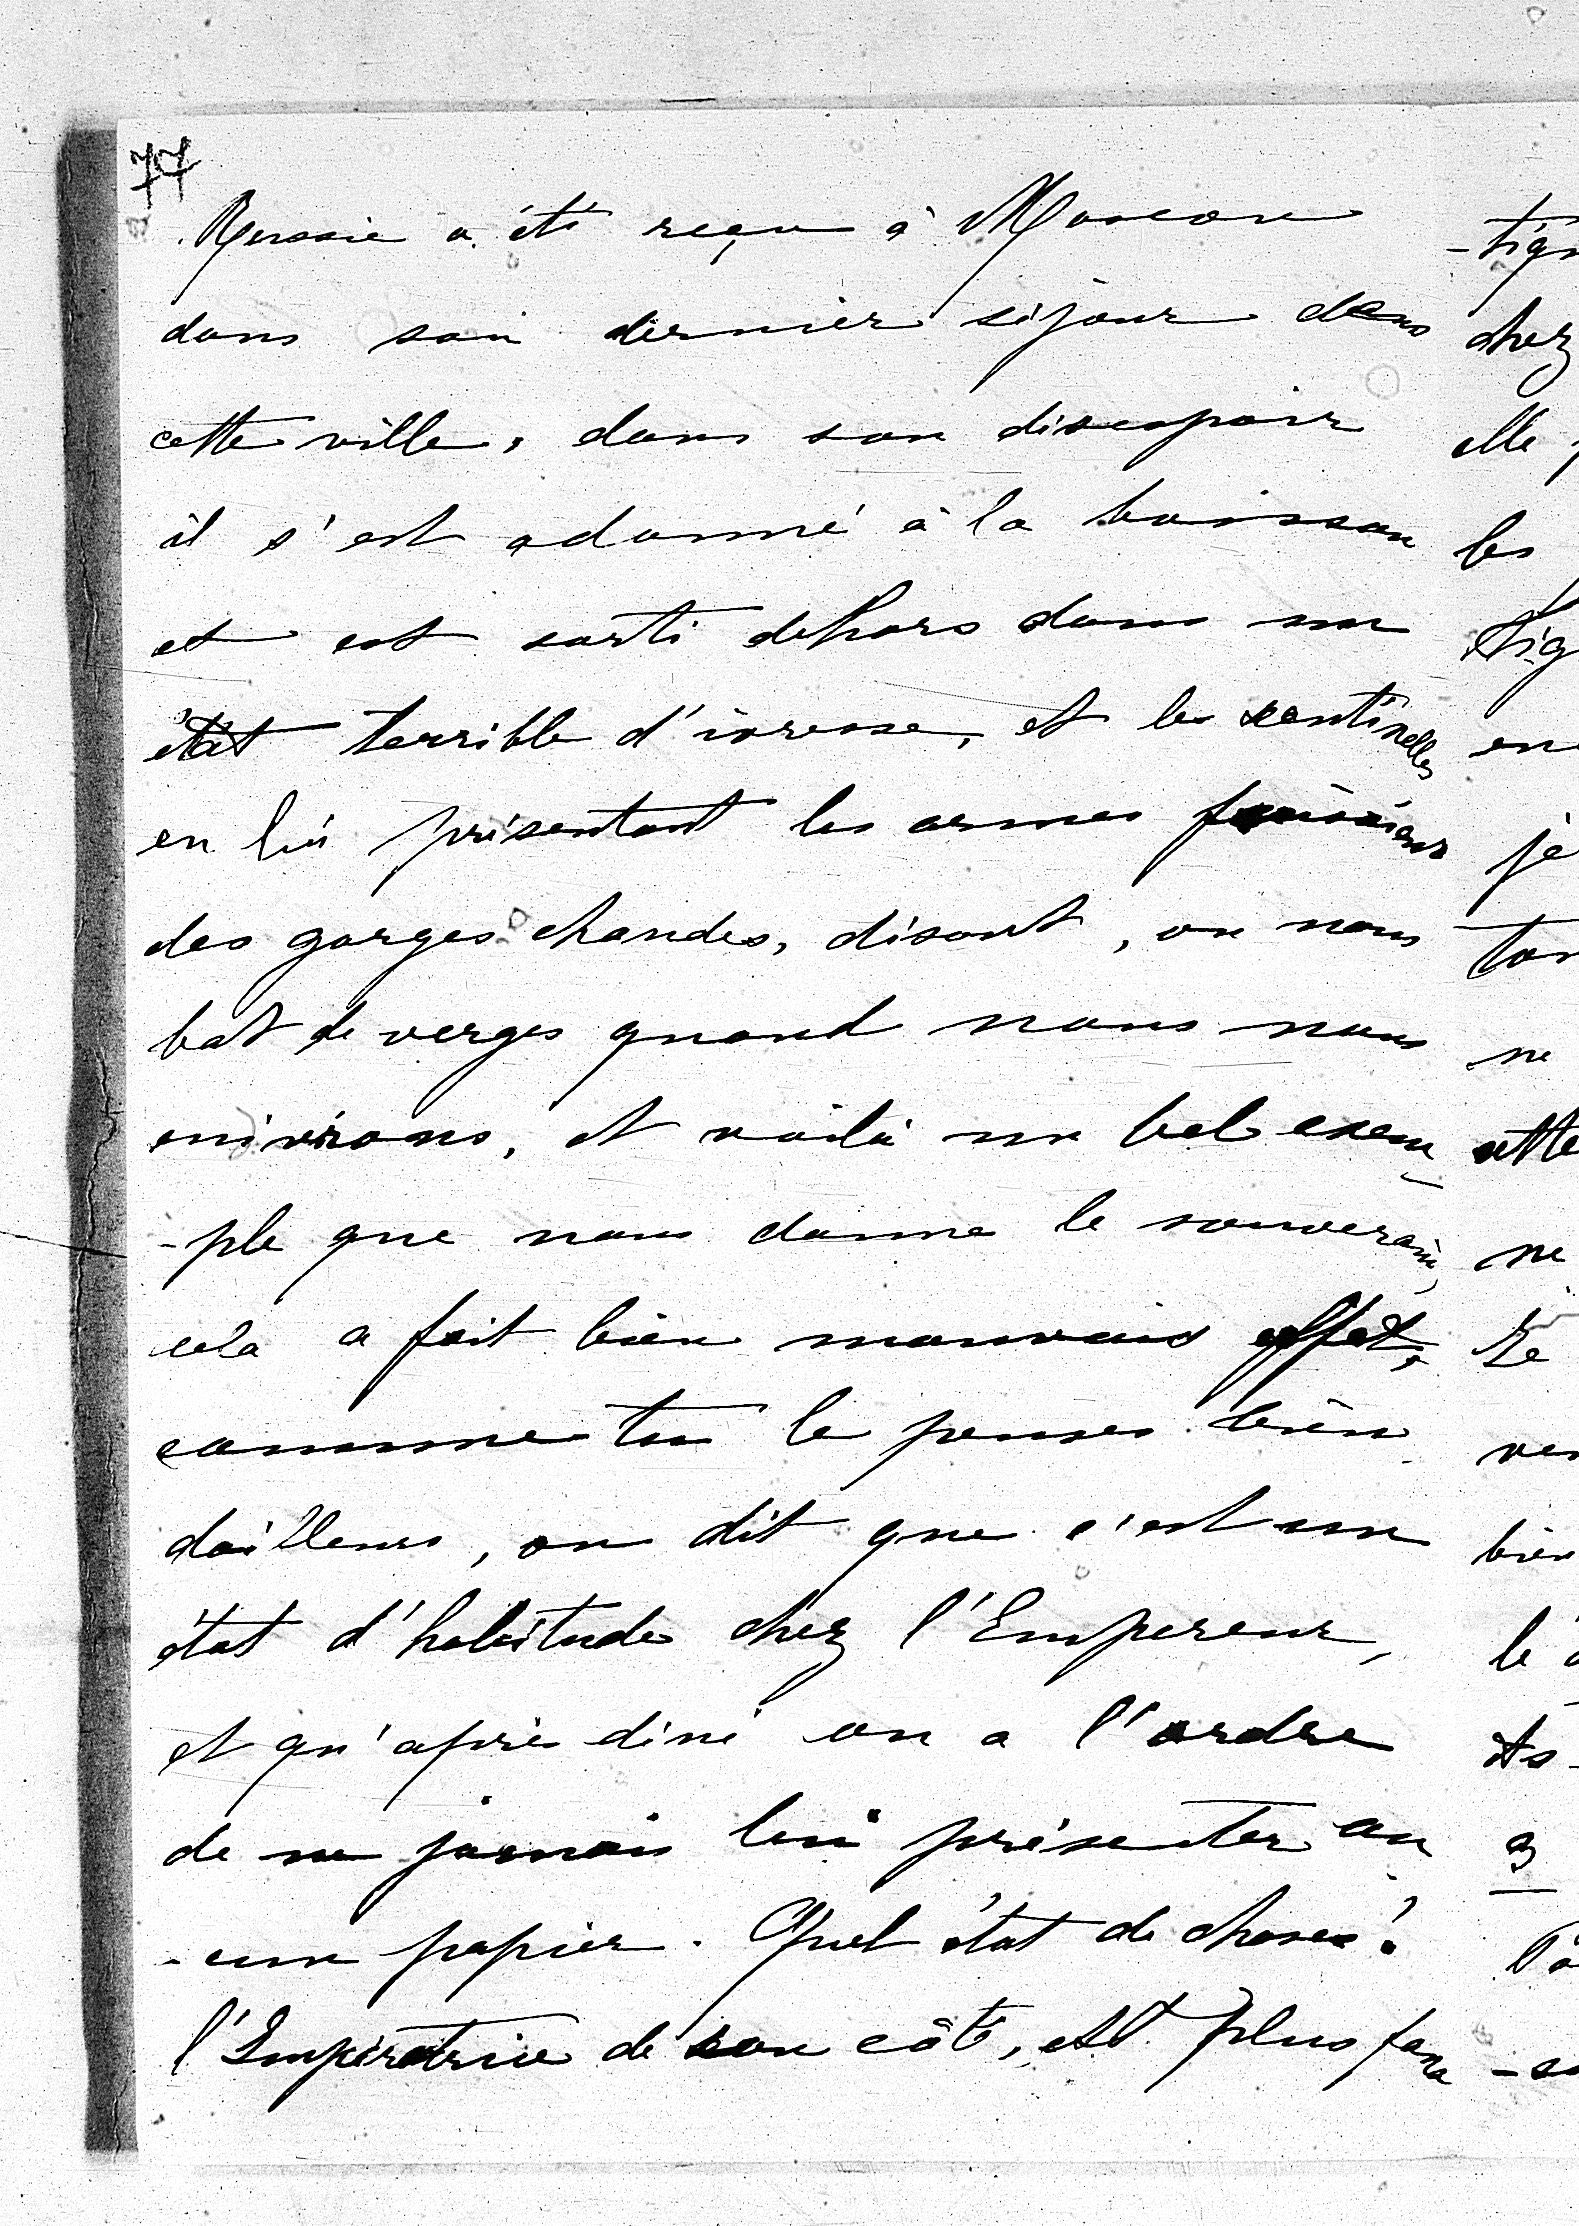 77
Russie a été reçu à Moscou
dans son dernier séjour dans
cette ville, dans son désespoir
il s'est adonné à la boisson
et est sorti dehors dans un
état terrible d'ivresse, et les sentinelles
en lui présentant les armes faisaient
des gorges chaudes, disant, on nous
bat de verges quand nous nous
enivrons, et voilà un bel exem
-ple que nous donne le souverain,
cela a fait bien mauvais effet,
comme tu le penses bien
dailleurs, on dit que c'est un
état d'habitude chez l'Empereur,
et qu'après diné on a l'ordre
de ne jamais lui présenter au
-cun papier. Quel état de choses!
l'Impératrice de son côté, est plus fana
-tig
chez
elle
les
en
je
ne
cette
ne
bien